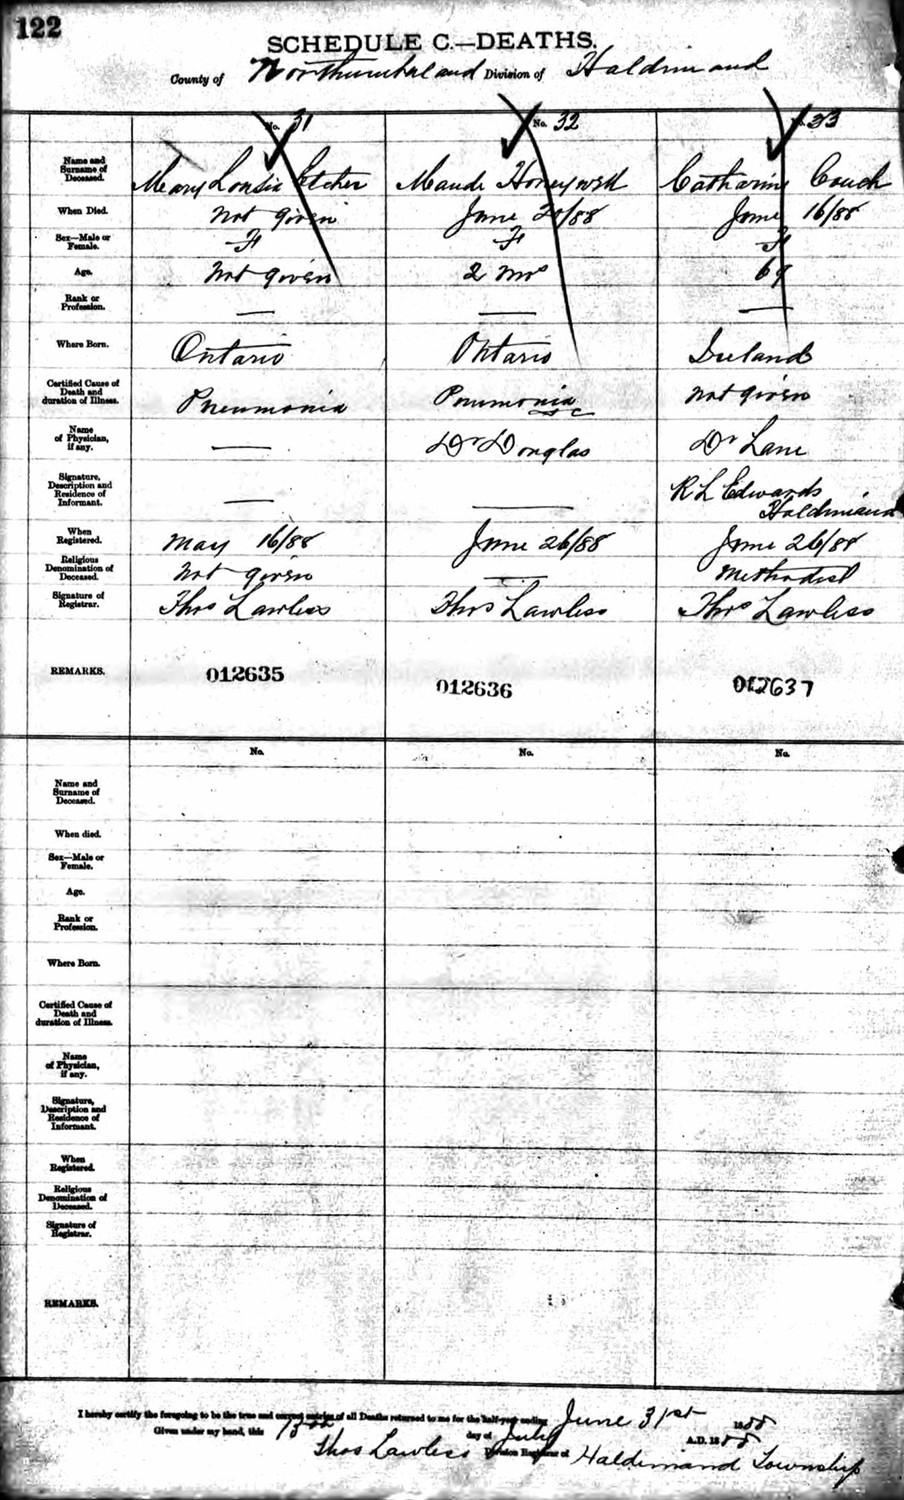 122
SCHEDULE C.—DEATHS.
County of Northumberland Division of Haldimand
No. 31 No. 32 No. 33
Name and Surname of Deceased. Mary Louisa Maude Honeywell Catharine Couch
When Died. Not given June /88 June 16/88
Sex—Male or Female. F F F
Age. Not given 2 mos 69
Rank or Profession. — — —
Where Born. Ontario Ontario Ireland
Certified Cause of Death and duration of Illness. Pneumonia Pnumonia Not given
Name of Physician, if any. — Dr Douglas Dr Lane
Signature, Description and Residence of Informant. — — R L Edwards
Haldimand
When Registered. May 16/88 June 26/88 June 26/88
Religious Denomination of Deceased. Not given — Methodist
Signature of Registrar. Thos Lawless Thos Lawless Thos Lawless
REMARKS. 012635 012636 012637
No. No. No.
Name and Surname of Deceased.
When died.
Sex—Male or Female.
Age.
Rank or Profession.
Where Born.
Certified Cause of Death and duration of Illness.
Name of Physician, if any.
Signature, Description and Residence of Informant.
When Registered.
Religious Denomination of Deceased.
Signature of Registrar.
REMARKS.
I hereby certify the foregoing to be the true and correct entries of all Deaths returned to me for the half-year ending June 31st 1888
Given under my hand, this day of July A.D. 1888
Thos Lawless Division Registrar of Haldimand Township